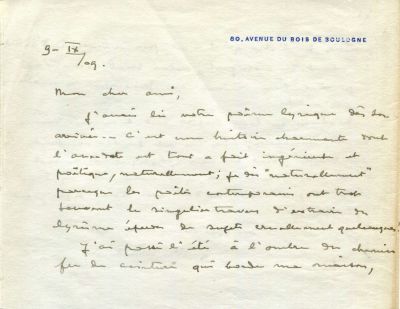 80, AVENUE DU BOIS DE BOULOGNE
9- IX/09.
Mon cher ami,
J'avais lu votre poème lyrique dès son
arrivée... C'est une histoire charmante dont
l'anecdote est tout a fait ingénieuse et
poétique, naturellement; je dis "naturellement"
parceque les poètes contemporains ont trop
souvent le singulier travers d'extraire du
lyrisme de sujets
J'ai passé l'été à l'ombre du chemin
fer de ceinture qui borde ma maison,